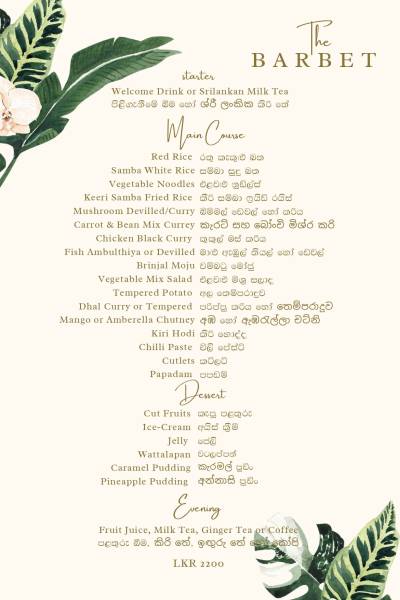 The
BARBET
starter
Welcome Drink or Srilankan Milk Tea
පිළිගැනීමේ බීම හෝ ශ්රී ලංකික කිරි තේ
Main Course
Red Rice රතු කැකුළු බත
Samba White Rice සම්බා සුදු බත
Vegetable Noodles එළවළු නූඩ්ල්ස්
Keeri Samba Fried Rice කීරි සම්බා ෆ්‍රයිඩ් රයිස්
Mushroom Devilled/Curry බිම්මල් ඩෙවල් හෝ කරිය
Carrot & Bean Mix Currey කැරට් සහ බෝංචි මිශ්ර කරි
Chicken Black Curry කුකුල් මස් කරිය
Fish Ambulthiya or Devilled මාළු ඇඹුල් තියල් හෝ ඩෙවල්
Brinjal Moju වම්බටු මෝජු
Vegetable Mix Salad එළවළු මිශ්‍ර සලාද
Tempered Potato අල තෙම්පරාදුව
Dhal Curry or Tempered පරිප්පු කරිය හෝ තෙම්පරාදුව
Mango or Amberella Chutney අඹ හෝ ඇඹරැල්ලා චට්නි
Kiri Hodi කිරි හොද්ද
Chilli Paste චිලී පේස්ට්
Cutlets කට්ලට්
Papadam පපඩම්
Dessert
Cut Fruits කැපූ පළතුරු
Ice-Cream අයිස් ක්‍රීම්
Jelly ජෙලි
Wattalapan වටලප්පන්
Caramel Pudding කැරමල් පුඩිං
Pineapple Pudding අන්නාසි පුඩිං
Evening
Fruit Juice, Milk Tea, Ginger Tea or Coffee
පළතුරු බීම, කිරි තේ, ඉඟුරු තේ හෝ කෝපි
LKR 2200